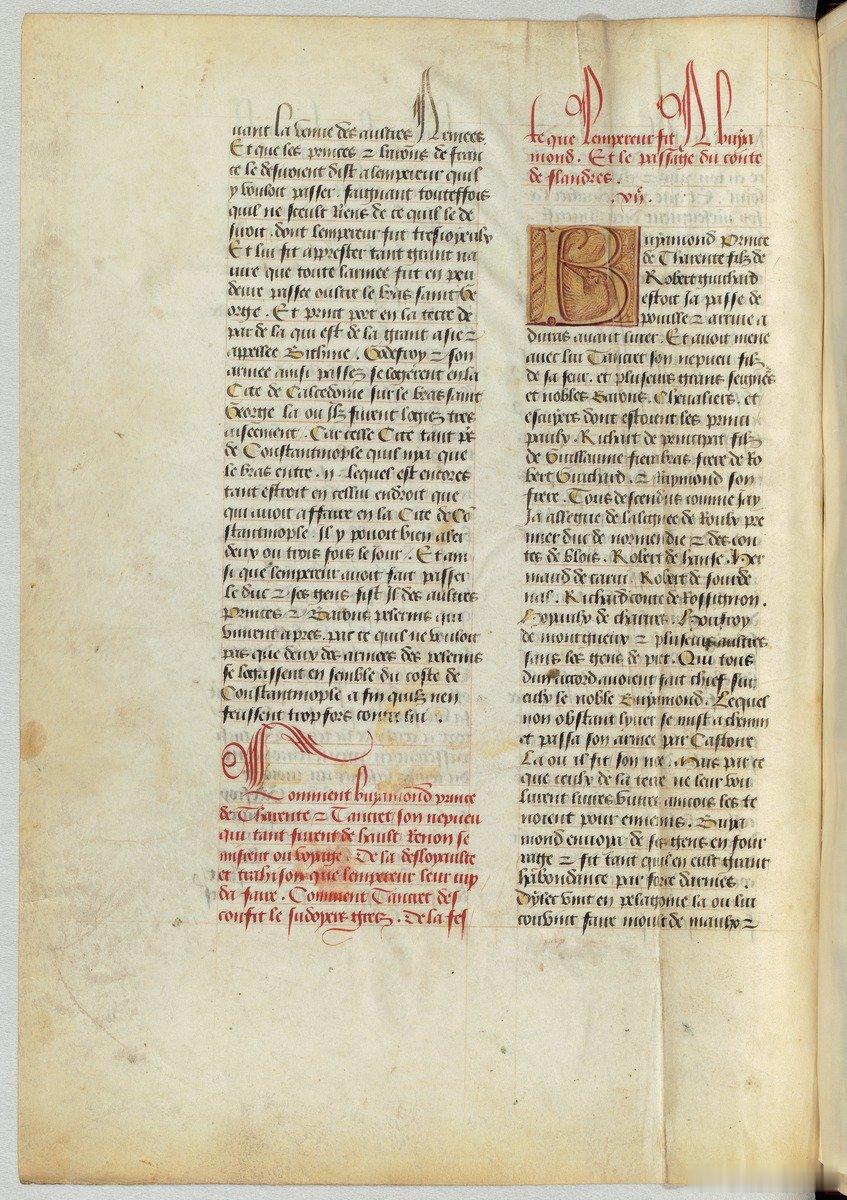 uant la venue des aultres Armees.
Et que les princes ⁊ barons de fran
ce le deuoient dist a lempereur quil
y vouloit passer. faignant touteffois
quil ne sceust riens de ce quil le de
suoit. dont lempereur fut tresioyeulx
Et lui fit apprester tant grant na
uire que toute larmee fut en peu
deure passee oultre le bras saint Ge
orge. Et print port en la terre de
par de la qui est de la grant asie ⁊
appellee Bithine. Godefroy ⁊ son
armee ainsi passez se logerent en la
Cite de Calcedoine sur le bras saint
George la ou Ilz furent logiez tres
aiseement. Car celle Cite tant pres
de Constantinople quil nya que
le bras entre .ii. lequel est encores
tant estroit en cellui endroit que
qui auoit affaire en la Cite de Co
stantinople. Il y pouoit bien aler
deux ou trois fois le Jour. Et ain
si que lempereur auoit fait passer
le duc ⁊ ses gens fist Il des aultres
Princes ⁊ Barons pelerins qui
vinrent apres. par ce quil ne vouloit
pas que deux des armees des pelerins
se logassent en semble du coste de
Constantinople a fin quilz nen
feussent trop fors contre lui.
Comment buyamond prince
de Tharente ⁊ Tancret son nepueu
qui tant furent de hault Renon se
misrent ou voyage. De la desloyaulte
et trahison que lempereur leur cuy
da faire. Comment Tancret des
confit le sudoyers grecz. De la fes
te que lempereur fit A buya
mond. Et le passage du conte
de flandres.
.vij.
Buyamond Prince
de Tharente filz de
Robert guichard
estoit Ja passe de
pouille ⁊ arriue a
duras auant liuer. Et auoit mene
auec lui Tancret son nepueu filz
de sa seur. et plusieurs grans seigneurs
et nobles Barons. Chevaliers. et
escuyers dont estoient les princi
paulx. Richart de principat filz
de Guillaume fierabras frere de Ro
bert Guichard. ⁊ Raymond son
frere. Tous descendus comme Jay
Ja allegue de la lignee de Roulx pre
mier duc de normendie ⁊ des con
tes de blois. Robert de hanse. Her
maud de carni. Robert de sourde
nal. Richard conte de Rossignon.
Bopaulx de chartres. Houfroy
de montqueux ⁊ plusieurs aultres
sans les gens de piet. Qui tous
dun accord auoient fait chief sur
eulx le noble Buyamond. Lequel
non obstant lyuer se mist a chemin
et passa son armee par Castoire
La ou il fit son noe. Mais par ce
que ceulx de la terre ne leur vou
lurent liurer viures aincois les te
noient pour ennemis. Buya
mond enuoya de ses gens en four
rage ⁊ fit tant quil en eust grant
habondance par force darmes.
Dylec vint en pelagonie la ou lui
couuint faire moult de maulx ⁊